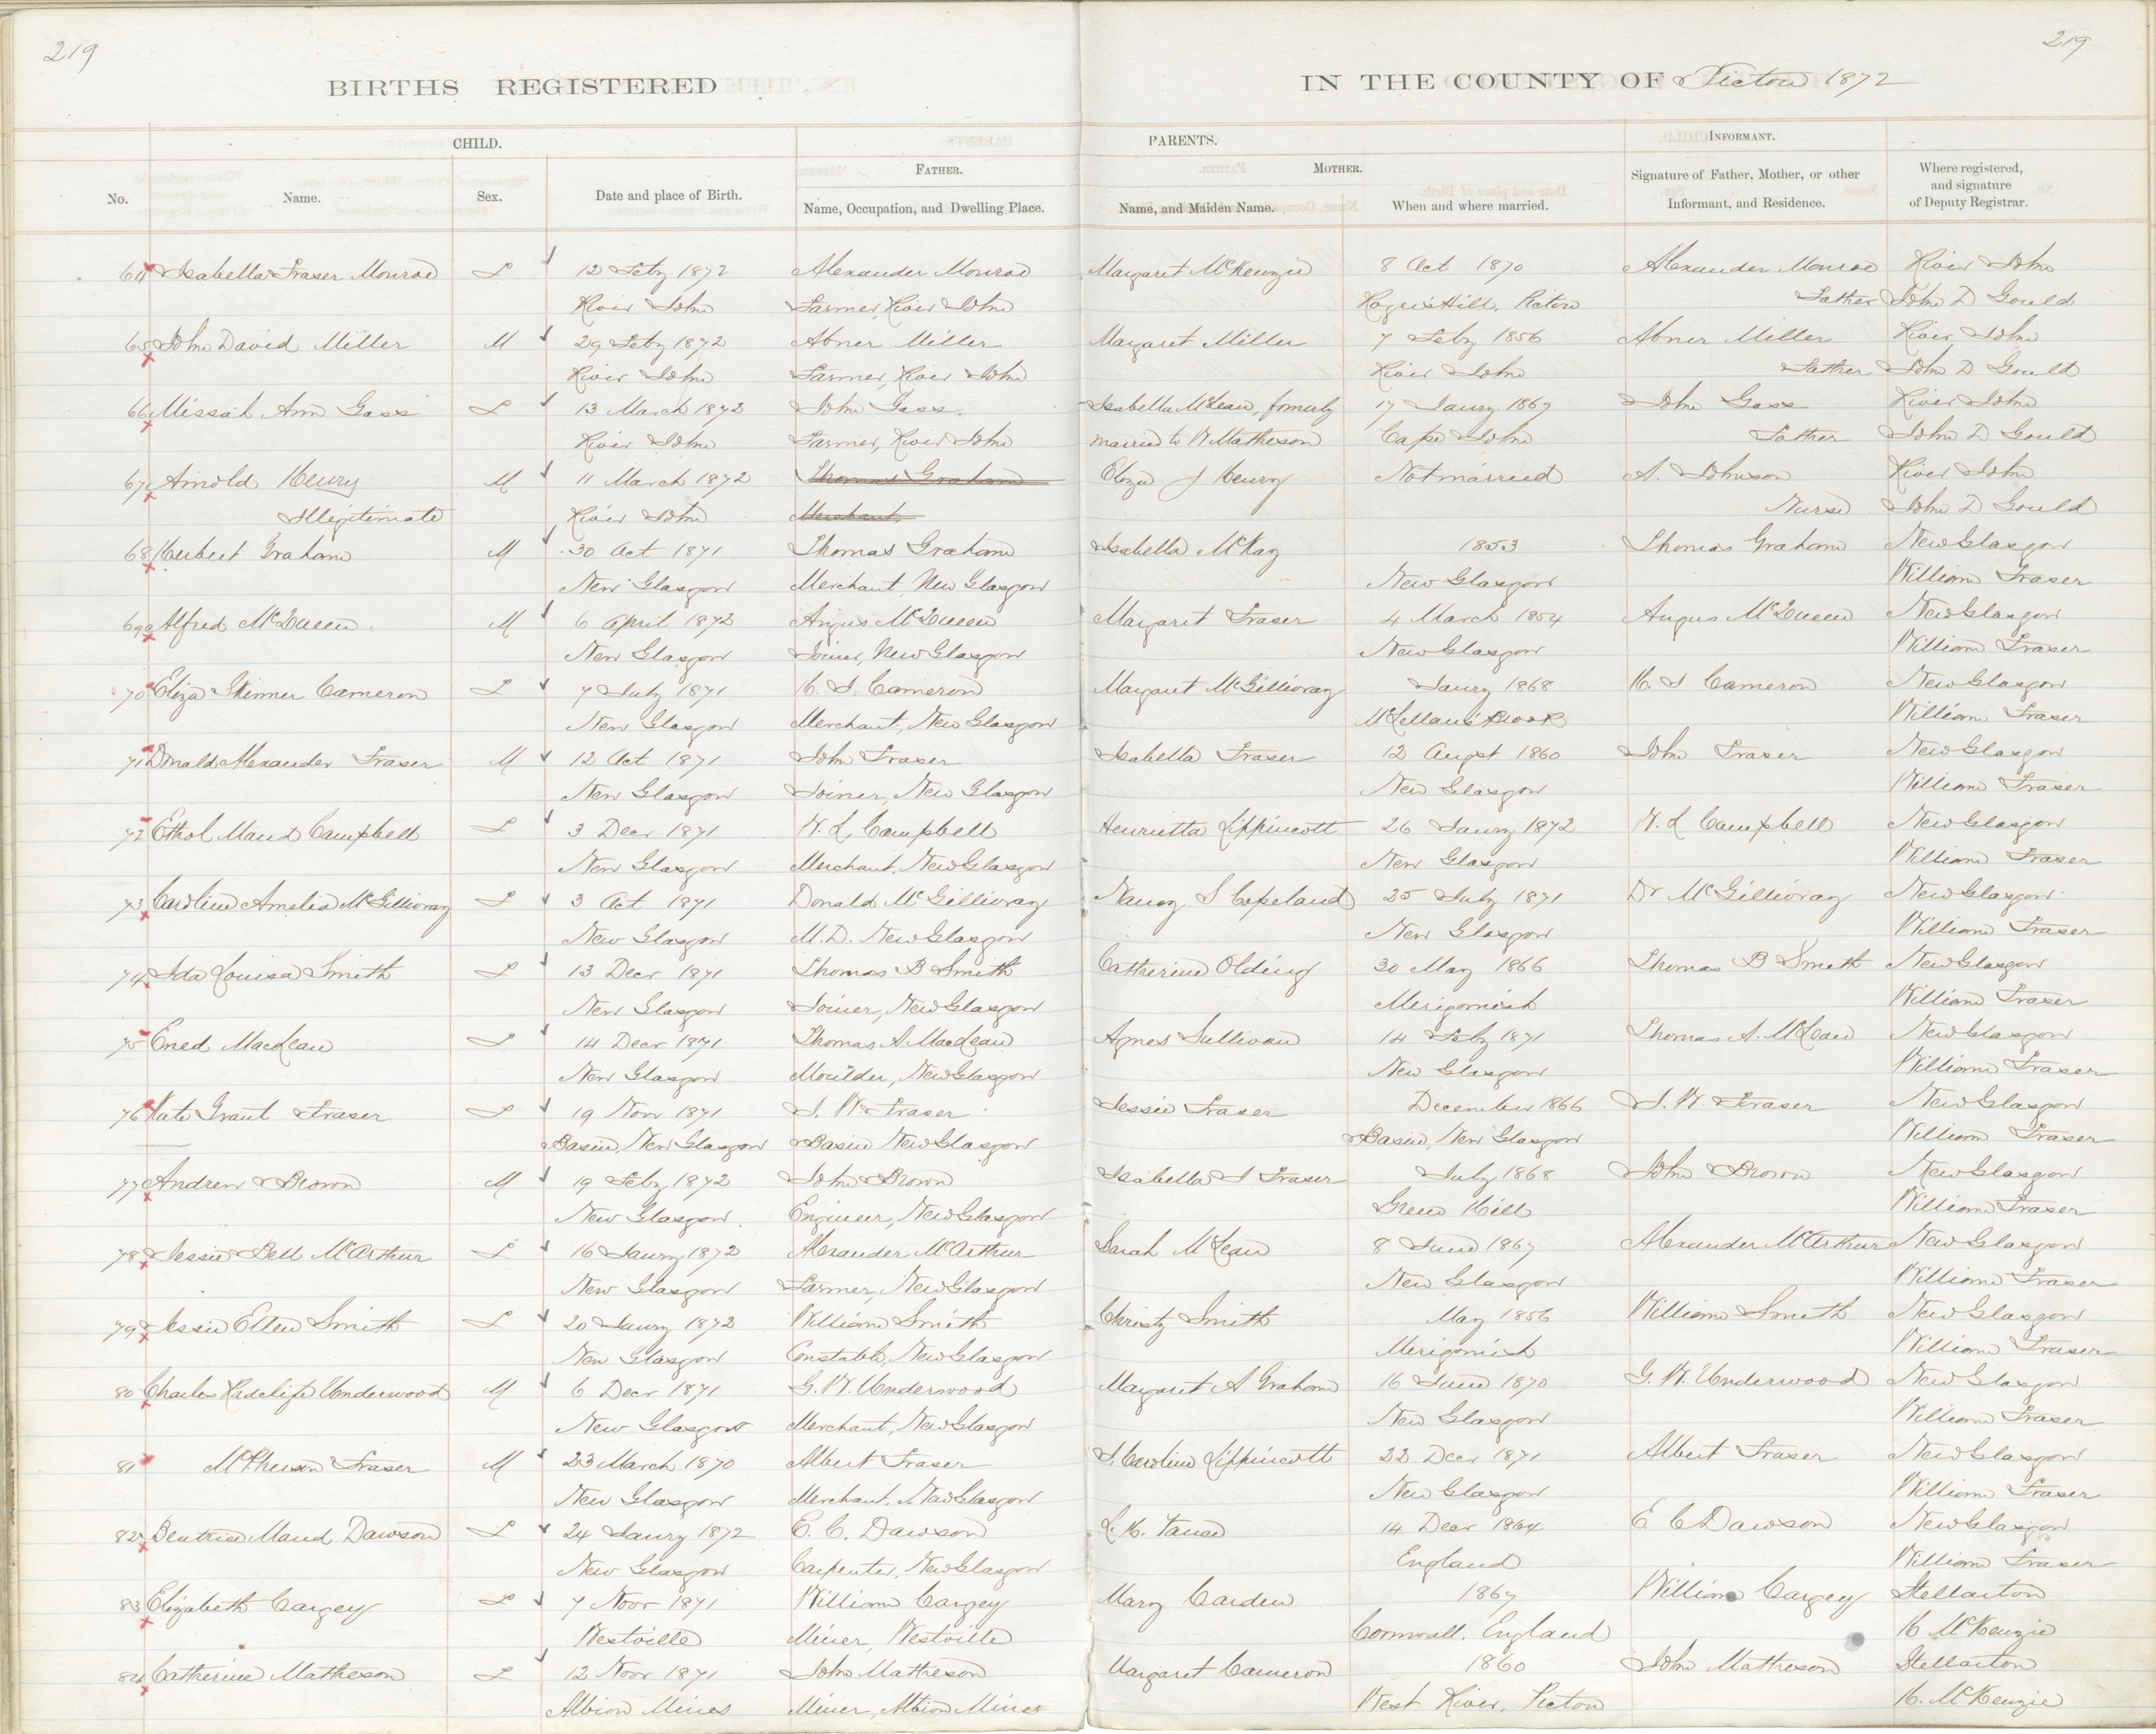 219
219
BIRTHS REGISTERED
IN THE COUNTY OF Pictou 1872
CHILD.
PARENTS.
INFORMANT.
FATHER.
MOTHER.
No.
Name.
Sex.
Date and place of Birth.
Name, Occupation, and Dwelling Place.
Name, and Maiden Name.
When and where married.
Signature of Father, Mother, or other
Informant, and Residence.
Where registered,
and signature
of Deputy Registrar.
64 Isabella Fraser Monroe F 12 Feby 1872 Alexander Monroe Margaret McKenzie 8 Oct 1870 Alexander Monroe River John
River John Farmer, River John Roger's Hill, Pictou Father John D Gould
65 John David Miller M 29 Feby 1872 Abner Miller Margaret Miller 7 Feby 1856 Abner Miller River John
River John Farmer, River John River John Father John D Gould
66 Missah Ann Gass F 13 March 1872 John Gass. Isabella McLean, formerly 17 Jaury 1867 John Gass River John
River John Farmer, River John married to W Matheson Cape John Father John D Gould
67 Arnold Henry M 11 March 1872 Thomas Graham Eliza J Henry Not married A. Johnson River John
Illegitimate River John Merchant, Nurse John D Gould
68 Herbert Graham M 30 Oct 1871 Thomas Graham Isabella McKay 1853 Thomas Graham New Glasgow
New Glasgow Merchant, New Glasgow New Glasgow William Fraser
69 Alfred McQueen M 6 April 1872 Angus McQueen Margaret Fraser 4 March 1854 Angus McQueen New Glasgow
New Glasgow Joiner, New Glasgow New Glasgow William Fraser
70 Eliza Skinner Cameron F 7 July 1871 H. J. Cameron Margaret McGillivray Jaury 1868 H. J Cameron New Glasgow
New Glasgow Merchant, New Glasgow McLellan's Brook William Fraser
71 Donald Alexander Fraser M 12 Oct 1871 John Fraser Isabella Fraser 12 Augst 1860 John Fraser New Glasgow
New Glasgow Joiner, New Glasgow New Glasgow William Fraser
72 Ethol Maud Campbell F 3 Decr 1871 W. L. Campbell Henrietta Lippincott 26 Jaury 1872 W. L Campbell New Glasgow
New Glasgow Merchant, New Glasgow New Glasgow William Fraser
73 Caroline Amelia McGillivray F 3 Oct 1871 Donald McGillivray Nancy S Copeland 25 July 1871 Dr McGillivray New Glasgow
New Glasgow M.D. New Glasgow New Glasgow William Fraser
74 Ida Louisa Smith F 13 Decr 1871 Thomas B Smith Catherine Olding 30 May 1866 Thomas B Smith New Glasgow
New Glasgow Joiner, New Glasgow Merigomish William Fraser
75 Ened MacLean F 14 Decr 1871 Thomas A MacLean Agnes Sullivan 14 Feby 1871 Thomas A. McLean New Glasgow
New Glasgow Moulder, New Glasgow New Glasgow William Fraser
76 Kate Grant Fraser F 19 Novr 1871 J. W. Fraser Jessie Fraser December 1866 J. W. Fraser New Glasgow
Basin, New Glasgow Basin New Glasgow Basin, New Glasgow William Fraser
77 Andrew Brown M 19 Feby 1872 John Brown Isabella J Fraser July 1868 John Brown New Glasgow
New Glasgow. Engineer, New Glasgow Green Hill William Fraser
78 Jessie Bell McArthur F 16 Jaury 1872 Alexander McArthur Sarah McLean 8 June 1867 Alexander McArthur New Glasgow
New Glasgow Farmer, New Glasgow New Glasgow William Fraser
79 Jessie Ellen Smith F 20 Jaury 1872 William Smith Christy Smith May 1856 William Smith New Glasgow
New Glasgow Constable, New Glasgow Merigomish William Fraser
80 Charles Radclife Underwood M 6 Decr 1871 G. W. Underwood Margaret A Graham 16 June 1870 G. W. Underwood New Glasgow
New Glasgow Merchant, New Glasgow New Glasgow William Fraser
81 McPherson Fraser M 23 March 1870 Albert Fraser J. Caroline Lippincott 22 Decr 1871 Albert Fraser New Glasgow
New Glasgow Merchant, New Glasgow New Glasgow William Fraser
82 Beatrice Maud Dawson F 24 Jaury 1872 E. C. Dawson L. H. 14 Decr 1864 E C Dawson New Glasgow
New Glasgow Carpenter, New Glasgow England William Fraser
83 Elizabeth Cargey F 7 Novr 1871 William Cargey Mary Carden 1867 William Cargey Stellarton
Westville Miner, Westville Cornwall. England H McKenzie
84 Catherine Matheson F 12 Novr 1871 John Matheson Margaret Cameron 1860 John Matheson Stellarton
Albion Mines Miner, Albion Mines West River, Pictou H. McKenzie